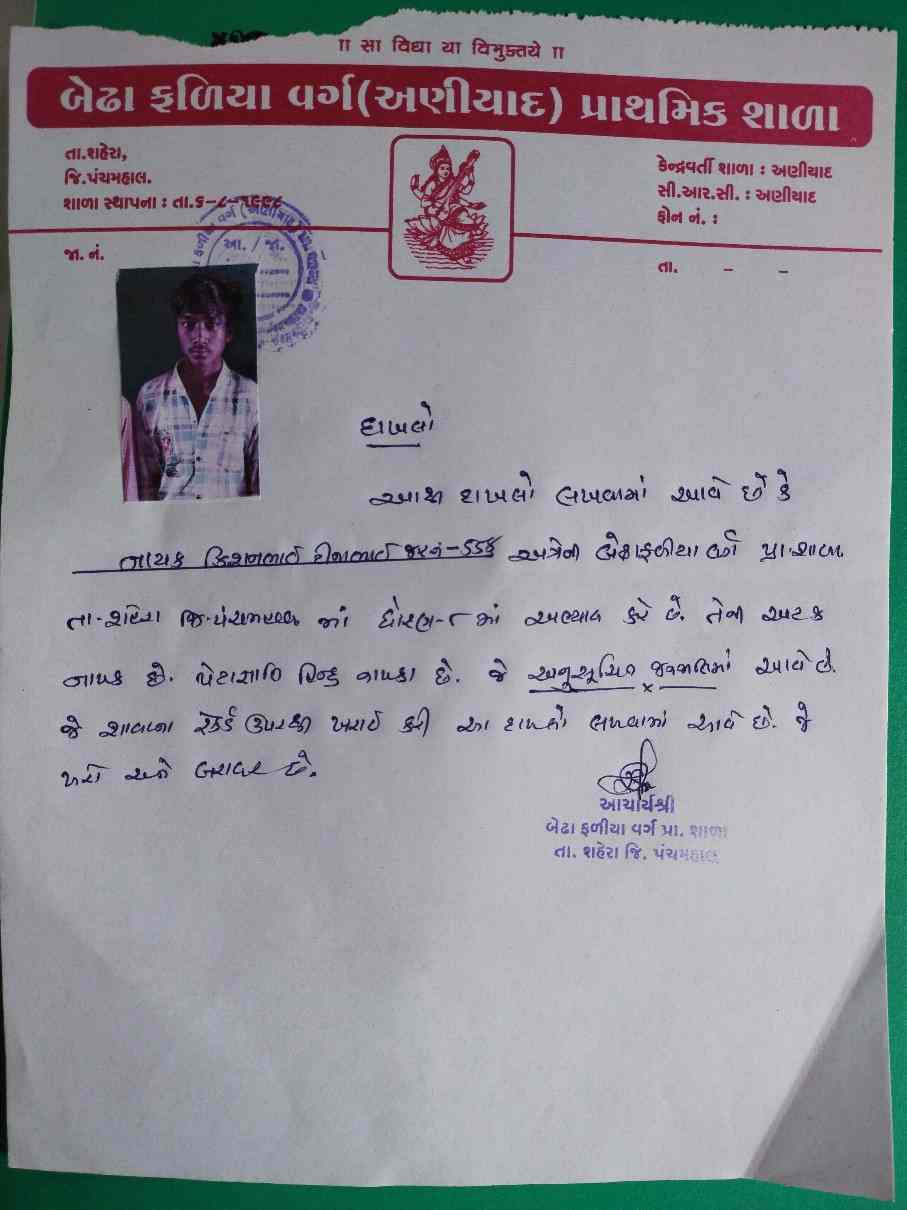 ॥ સા વિદ્યા યા વિમુક્તયે ॥
બેઢા ફળિયા વર્ગ(અણીયાદ) પ્રાથમિક શાળા
તા.શહેરા,
જિ.પંચમહાલ.
શાળા સ્થાપના : તા.૬-૮-૧૯૯૮
કેન્દ્રવર્તી શાળા : અણીયાદ
સી.આર.સી. : અણીયાદ
ફોન નં. :
જા. નં.
તા. - -
આ. / જા.
દાખલો
આથી દાખલો લખવામાં આવે છે કે
નાયક કિશનભાઈ જ.ર.નં-૬૬૬ અત્રેની બેઢાફળીયા વર્ગ પ્રા.શાળા
તા-શહેરા જિ-પંચમહાલ માં ધોરણ-૮ માં અભ્યાસ કરે છે. તેની અટક
નાયક છે. પેટાજ્ઞાતિ હિન્દુ નાયકા છે. જે અનુસૂચિત જનજાતિમાં આવે છે.
જે શાળાના રેકર્ડ ઉપરથી ખરાઈ કરી આ દાખલો લખવામાં આવે છે. જે
ખરો અને બરાબર છે.
આચાર્યશ્રી
બેઢા ફળીયા વર્ગ પ્રા. શાળા
તા. શહેરા જિ. પંચમહાલ